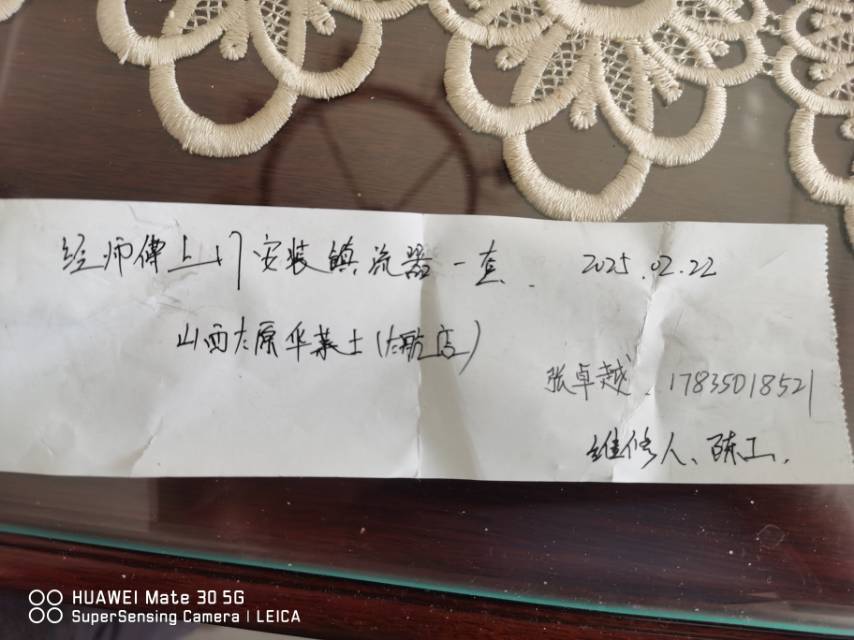 经师傅上门安装镇流器一套. 2025.02.22
山西太原华莱士(大航店)
张卓越. 17835018521
维修人、陈工.
HUAWEI Mate 30 5G
SuperSensing Camera | LEICA